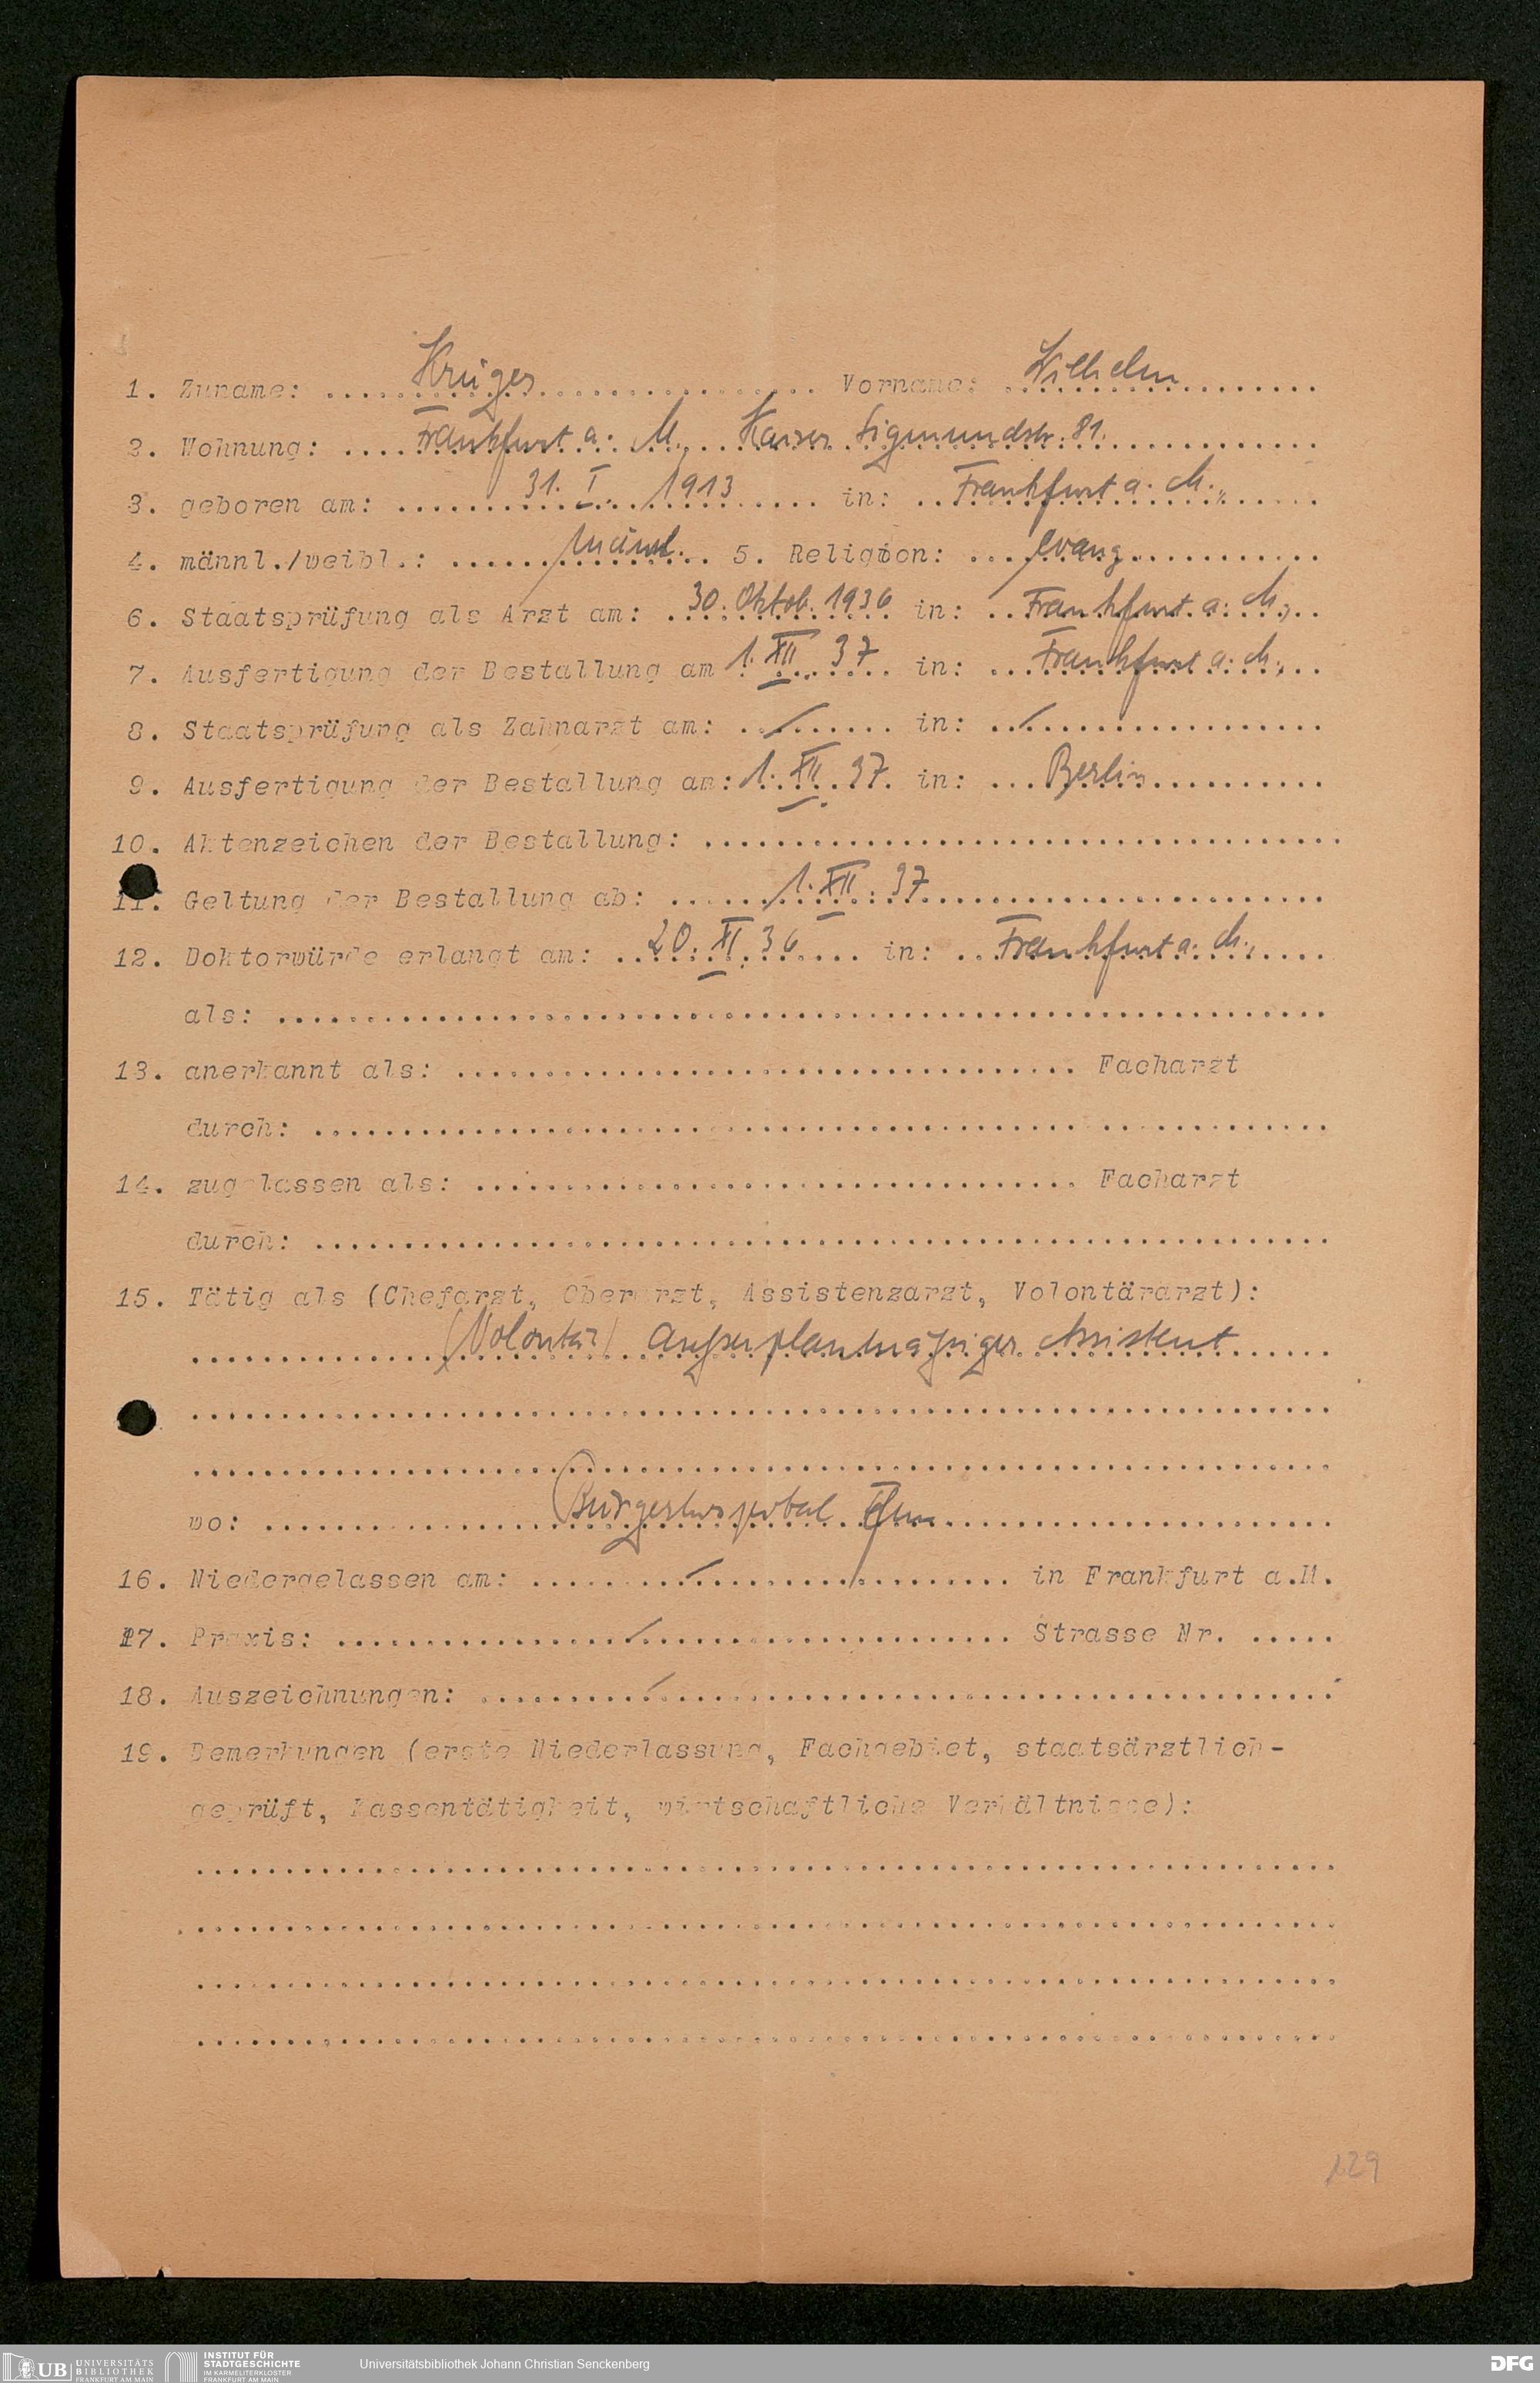 1. Zuname: Krüger Vorname: Wilhelm
2. Wohnung: Frankfurt a. M. Kaiser Sigmundstr. 81.
3. geboren am: 31. I. 1913 in: Frankfurt a. M.
4. männl./weibl.: männl. 5. Religion: evang.
6. Staatsprüfung als Arzt am: 30. Oktob. 1936 in: Frankfurt a. M.
7. Ausfertigung der Bestallung am 1. XII. 37 in: Frankfurt a. M.
8. Staatsprüfung als Zahnarzt am: / in: /
9. Ausfertigung der Bestallung am: 1. XII. 37. in: Berlin
10. Aktenzeichen der Bestallung:
11. Geltung der Bestallung ab: 1. XII. 37
12. Doktorwürde erlangt am: 20. XI. 36 in: Frankfurt a. M.
als:
13. anerkannt als: Facharzt
durch:
14. zugelassen als: Facharzt
durch:
15. Tätig als (Chefarzt, Oberarzt, Assistenzarzt, Volontärarzt):
(Volontär) Außerplanmäßiger Assistent
wo: Bürgerhospital
16. Niedergelassen am: / in Frankfurt a.M.
17. Praxis: / Strasse Nr.
18. Auszeichnungen: /
19. Bemerkungen (erste Niederlassung, Fachgebiet, staatsärztlich-
geprüft, Kassentätigkeit, wirtschaftliche Verhältnisse):
129
UB UNIVERSITÄTS
BIBLIOTHEK
FRANKFURT AM MAIN
INSTITUT FÜR
STADTGESCHICHTE
IM KARMELITERKLOSTER
FRANKFURT AM MAIN
Universitätsbibliothek Johann Christian Senckenberg
DFG